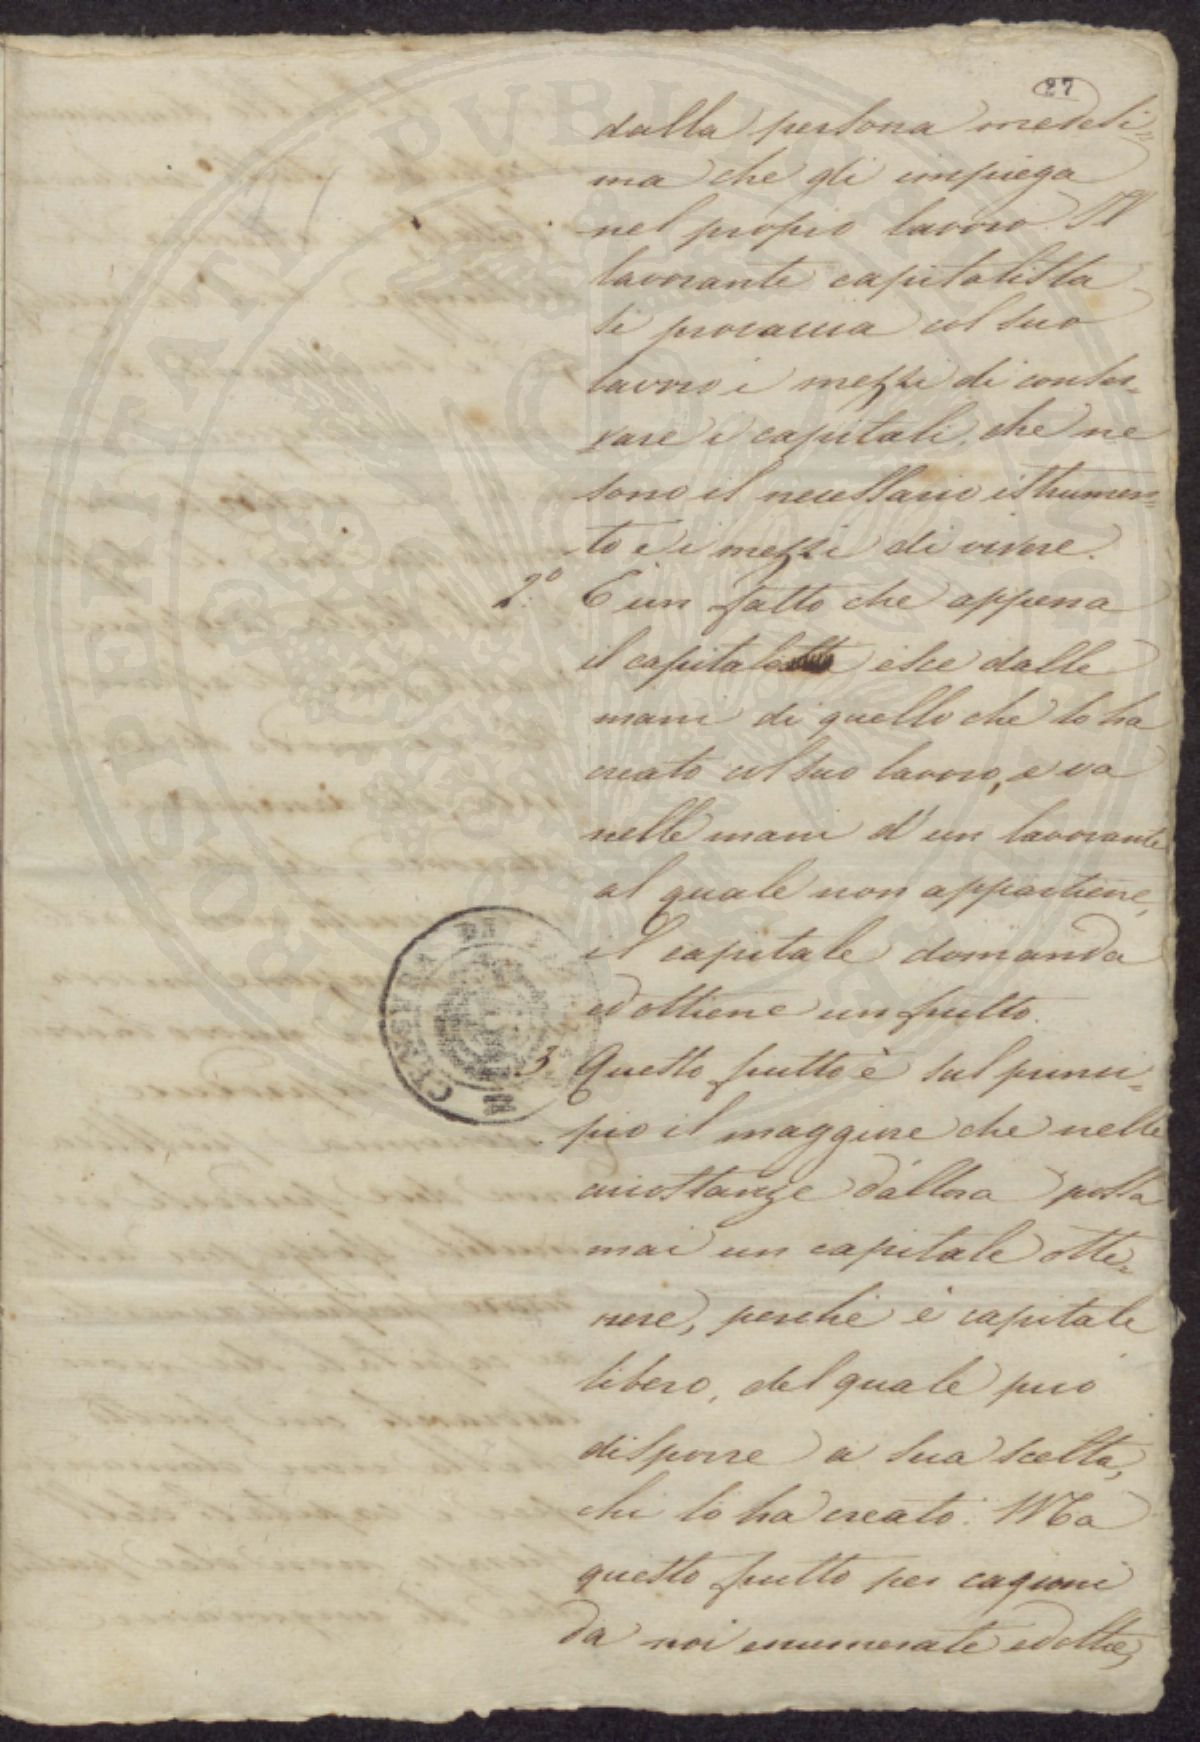 27
dalla persona medesi=
ma che gli impiega
nel proprio lavoro. Il
lavorante capitalista
si procaccia col suo
lavoro i mezzi di conser=
vare i capitali, che ne
sono il necessario istrumen=
to e i mezzi di vivere.
2.° È un fatto che appena
il capitale esce dalle
mani di quello che lo ha
creato col suo lavoro, e va
nelle mani d'un lavorante
al quale non appartiene,
il capitale domanda
ed ottiene un frutto.
3. Questo frutto è sul princi=
pio il maggiore che nelle
circostanze d'allora possa
mai un capitale otte=
nere, perchè è capitale
libero, del quale può
disporre a sua scelta,
chi lo ha creato. Ma
questo frutto per cagioni
da noi enumerate ed altre,
PROSPERITATI PVBLICAE
CENSURA